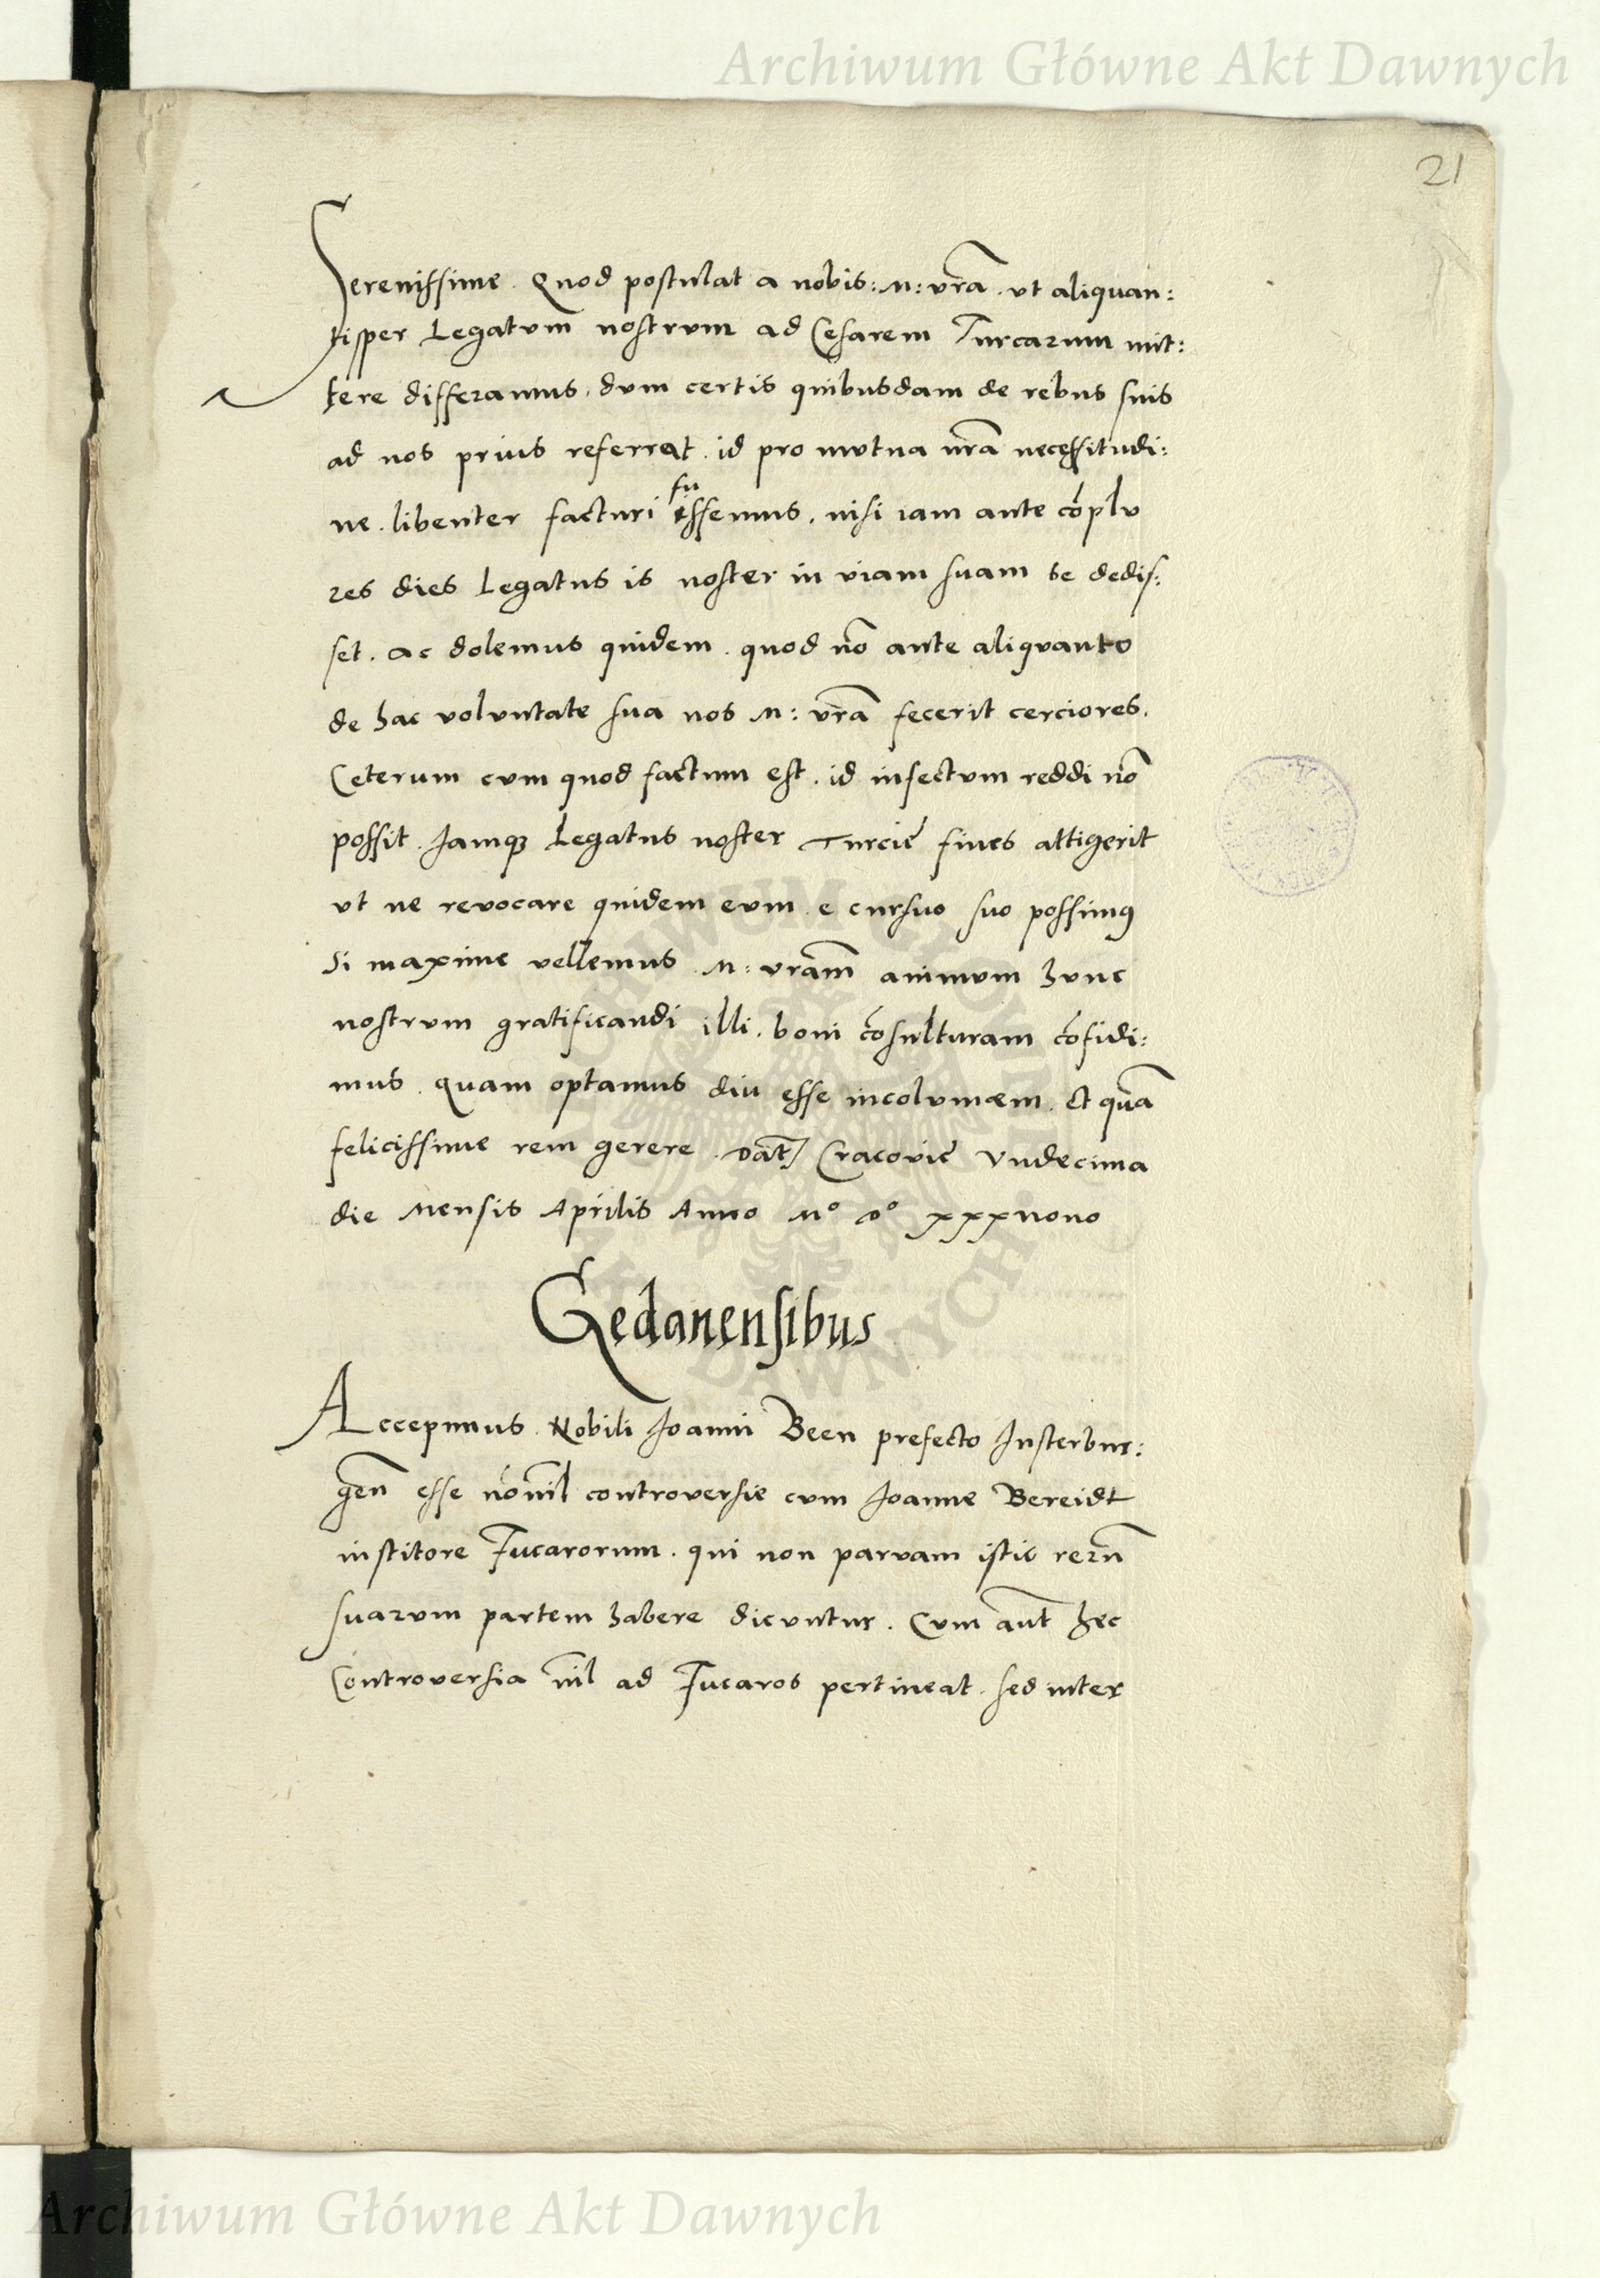 Archiwum Główne Akt Dawnych
21
Serenissime. Quod postulat a nobis: M: vr̃a. vt aliquan:
tisper Legatvm nostrvm ad Cesarem Turcarum mit:
tere differamus, dvm certis quibusdam de rebus suis
ad nos prius referret. id pro mvtua nr̃a necessitudi:
fu
ne. libenter facturi essemus. nisi iam ante cõplv
res dies Legatus is noster in viam suam se dedis:
set. ac dolemus quidem. quod nõ ante aliqvanto
de hac volvntate sua nos M: vr̃a fecerit cerciores.
Ceterum cvm quod factum est. id infectvm reddi nõ
possit. Jamqꝫ Legatus noster Turcię fines attigerit
vt ne revocare quidem evm e cursuo suo possimꝰ
si maxime vellemus. M: vr̃am animvm hvnc
nostrvm gratificandi illi. boni cõsulturam cõfidi:
mus. quam optamus div esse incolvmem. Et quã
felicissime rem gerere. Dat̃ Cracovię Vndecima
die Mensis Aprilis Anno Mº Dº xxxnono
Gedanensibus
Accepimus. Nobili Joanni Been prefecto Insterbur:
geñ esse nõnil̃ controversię cvm Joanne Bereidt
institore Fucarorum. qui non parvam istic rerũ
suarvm partem habere dicvntur. Cvm aut̃ hec
Controversia nil̃ ad Fucaros pertineat. sed inter
Archiwum Główne Akt Dawnych